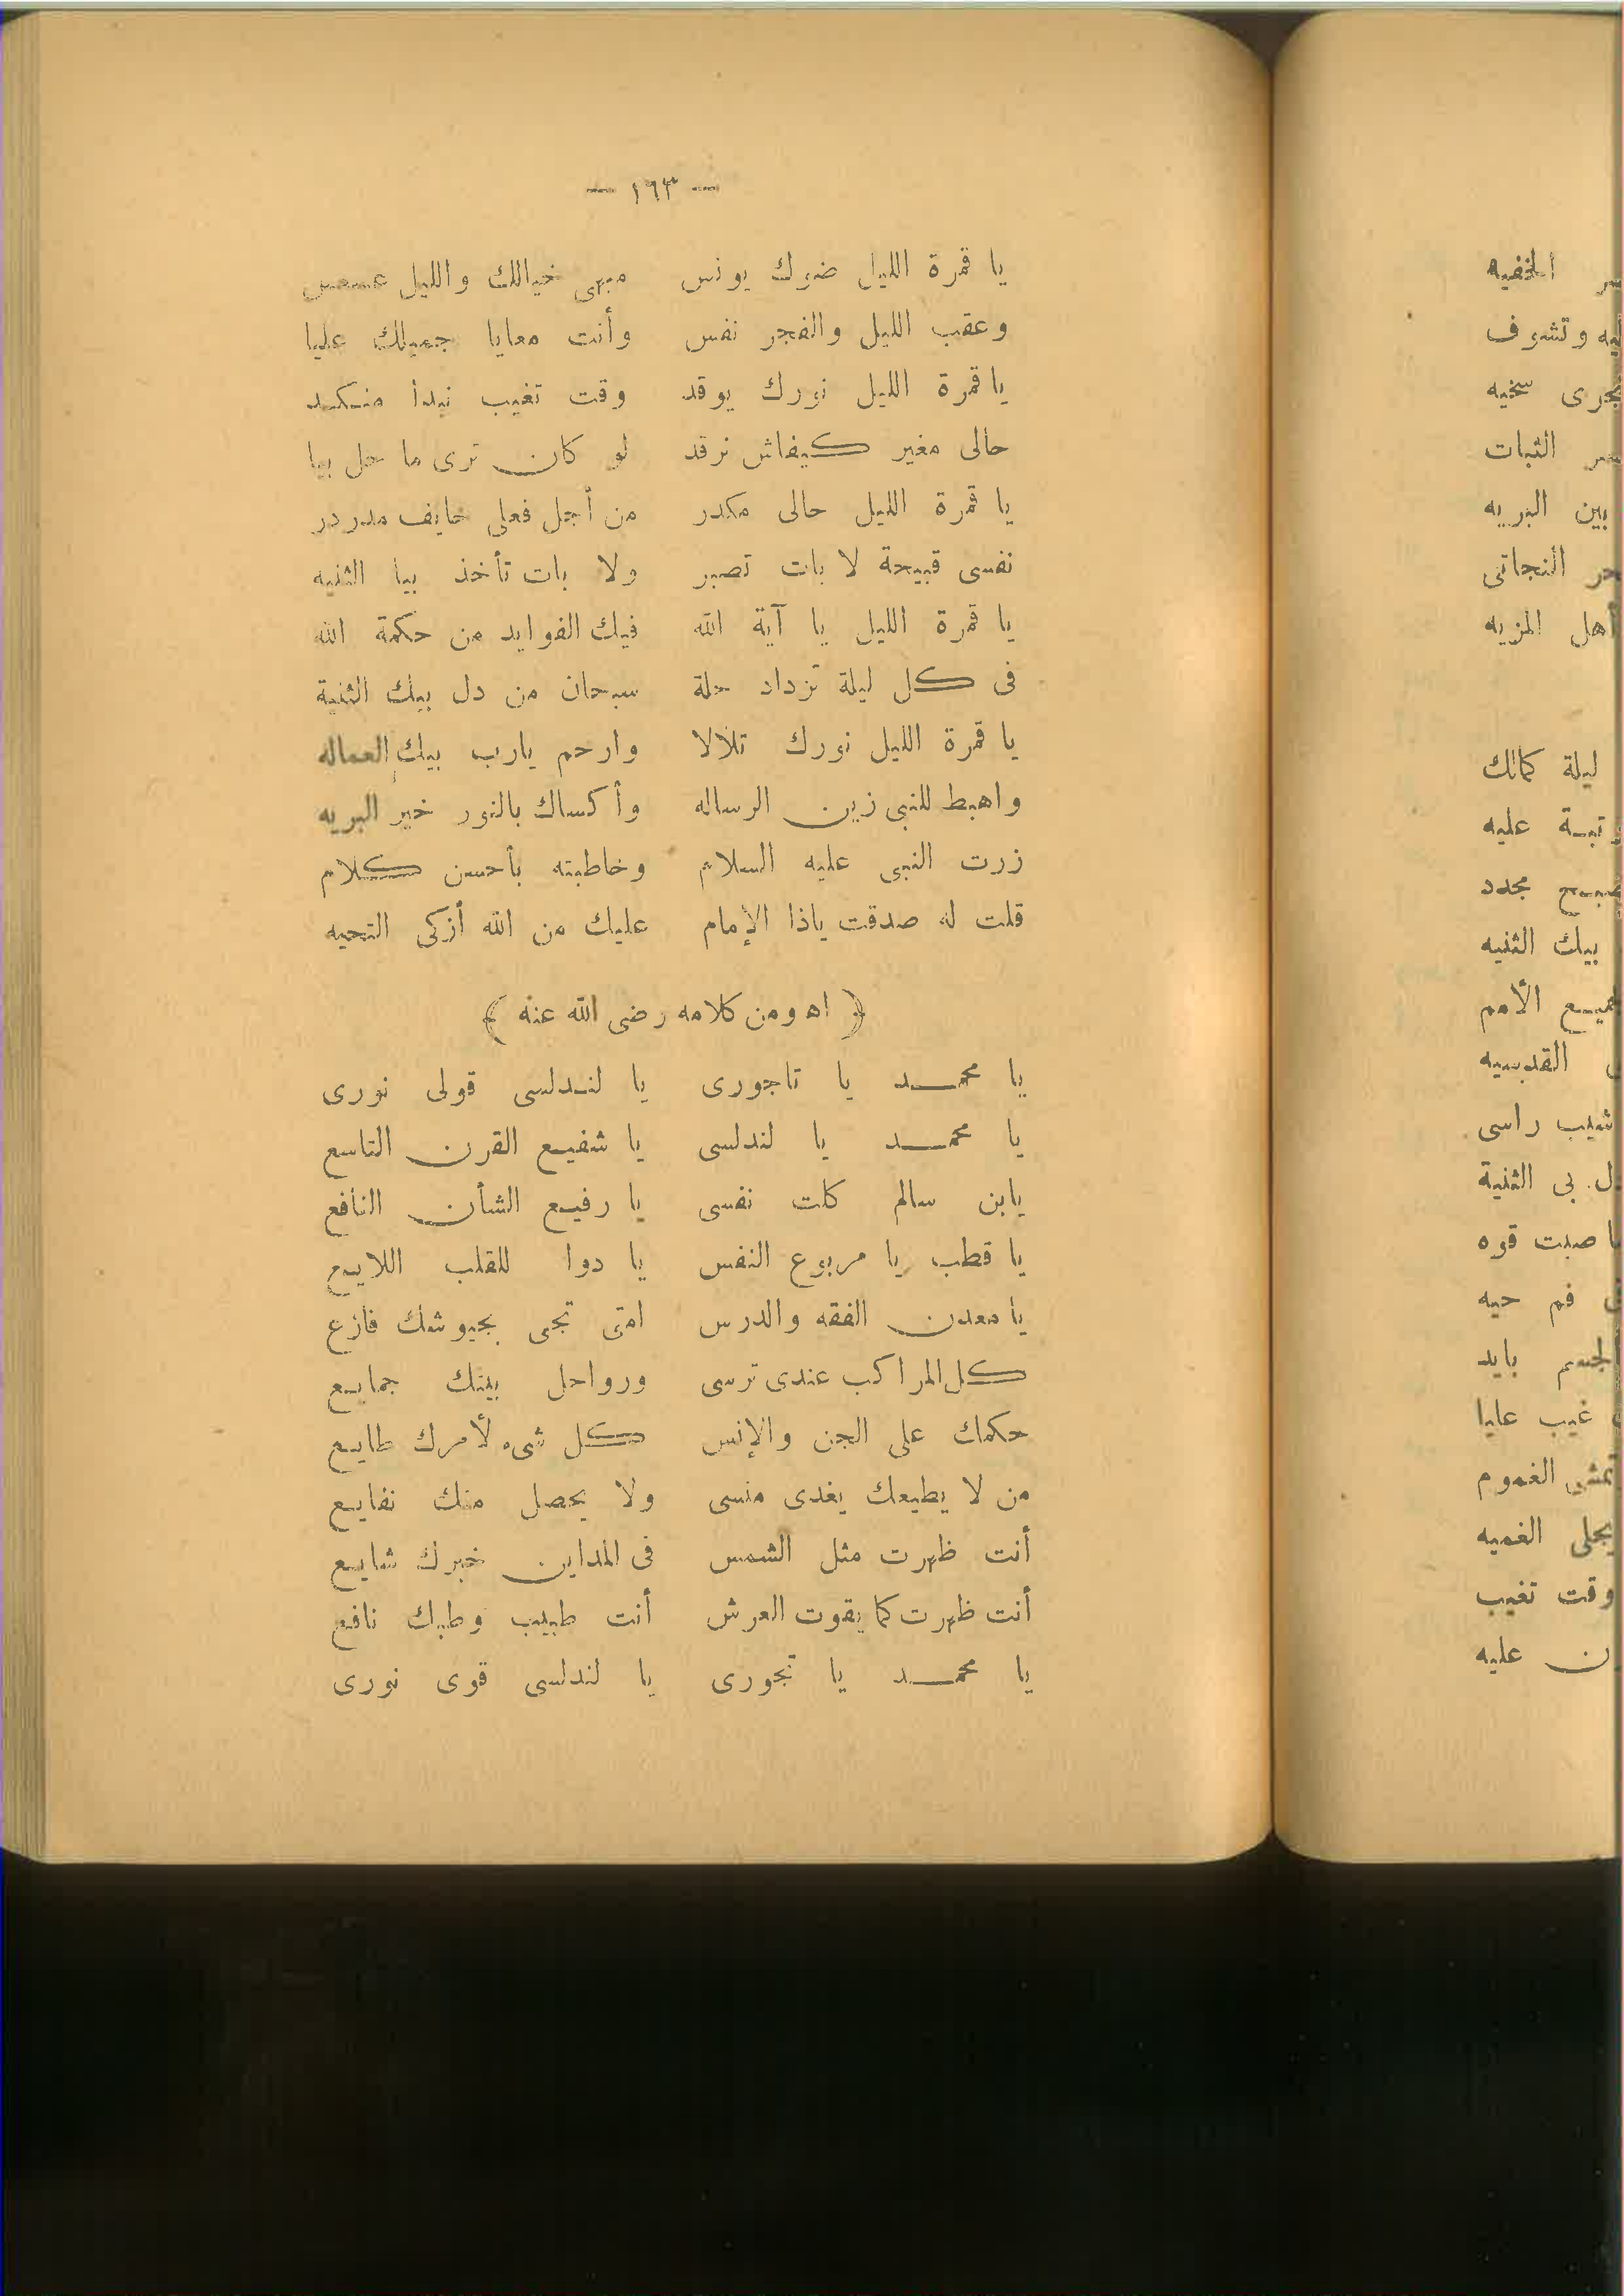 — ١٦٣ —
يا قمرة الليل ضوك يونس مبهى خيالك والليل عسعس
وعقب الليل والفجر نفس وأنت معايا جميلك عليا
يا قمرة الليل نورك يوقد وقت تغيب نبدأ منكد
حالى مغير كيفاش نرقد لو كان ترى ما حل بيا
يا قمرة الليل حالى مكدر من أجل فعلى خايف مدردر
نفسى قبيحة لا بات تصبر ولا بات تأخذ بيا الثنيه
يا قمرة الليل يا آية الله فيك الفوايد من حكمة الله
فى كل ليلة تزداد حلة سبحان من دل بيك الثنية
يا قمرة الليل نورك تلالا وارحم يارب بيك العماله
واهبط للنبى زين الرساله وأكساك بالنور خير البريه
زرت النبى عليه السلام وخاطبته بأحسن كلام
قلت له صدقت ياذا الإمام عليك من الله أزكى التحيه
﴿ اه ومن كلامه رضى الله عنه ﴾
يا محمد يا تاجورى يا لندلسى قولى نورى
يا محمد يا لندلسى يا شفيع القرن التاسع
يابن سالم كلت نفسى يا رفيع الشأن النافع
يا قطب يا مربوع النفس يا دوا للقلب اللايع
يا معدن الفقه والدرس امتى تجى بجيوشك فازع
كل المراكب عندى ترسى ورواحل بيتك جمايع
حكمك على الجن والإنس كل شىء لأمرك طايع
من لا يطيعك يغدى منسى ولا يحصل منك نفايع
أنت ظهرت مثل الشمس فى المداين خبرك شايع
أنت ظهرت كما يقوت العرش أنت طبيب وطبك نافع
يا محمد يا تجورى يا لندلسى قوى نورى
الخفيه
وتشوف
سخيه
الثبات
بين البريه
النجاتى
أهل المزيه
ليلة كمالك
عليه
مجدد
بيك الثنيه
الأمم
القدسيه
شيب راسى
بى الثنية
صبت قوه
فم حيه
بايد
غيب عليا
الغموم
الغميه
وقت تغيب
عليه